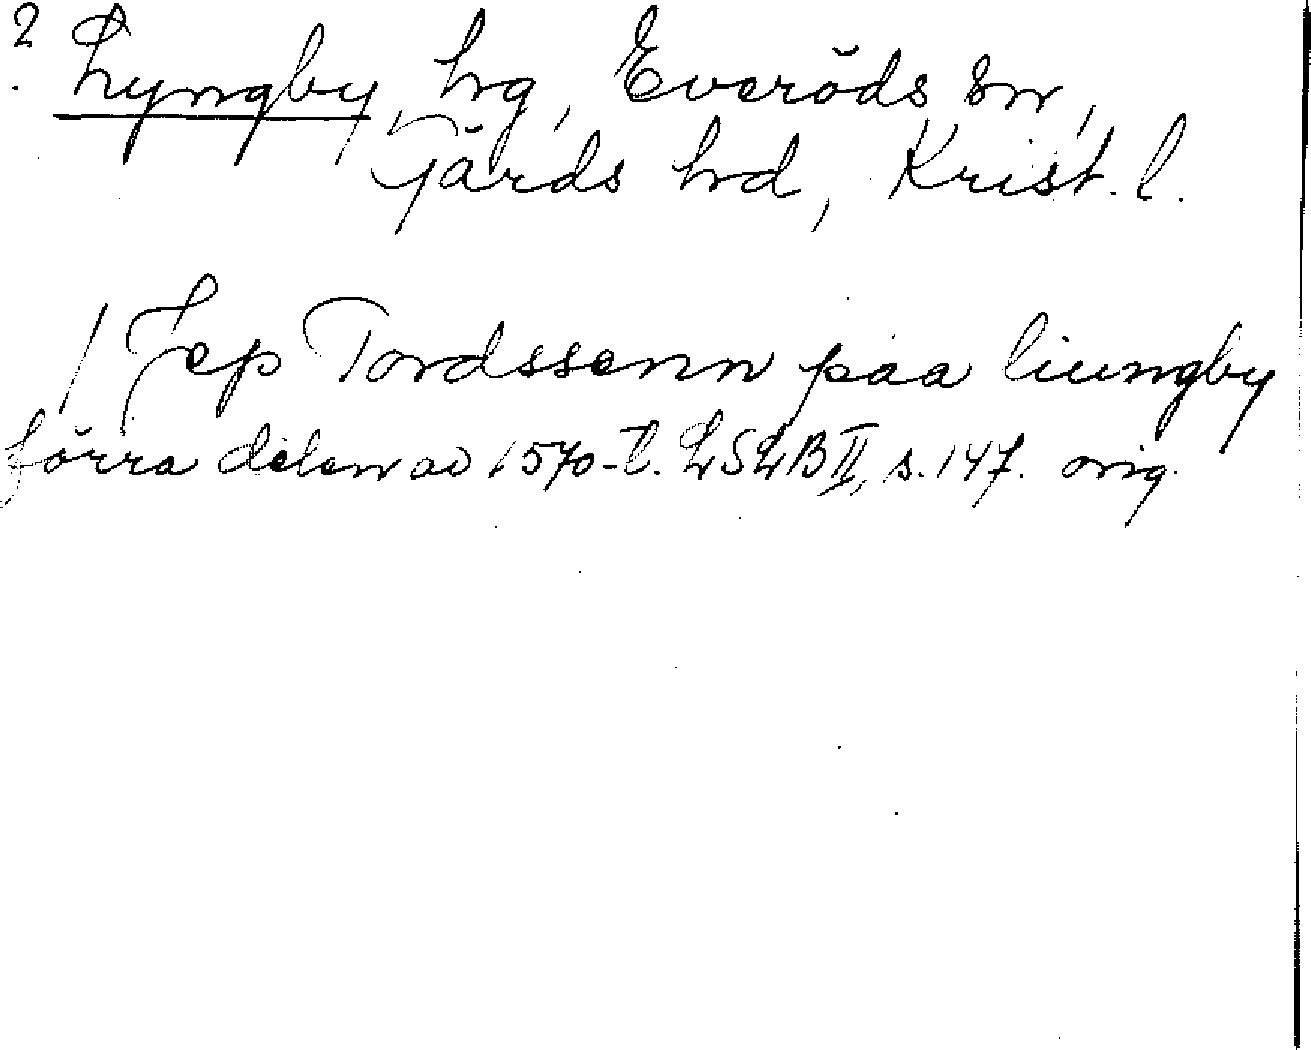 ? Lyngby, hg, Everöds sn,
Gärds hd, Krist. l.
/ Jep Tordssenn paa liungby
förra delen av 1570-t. LSLB II, s. 147. orig.